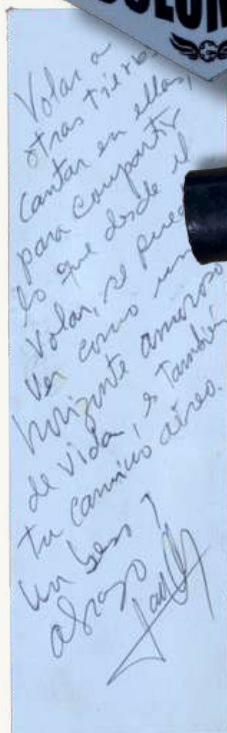 Volar a
otras tierras
cantar en ellas,
para compartir
lo que desde el
volar, se
ver como un
horizonte amoroso
de vida, es también
tu camino aéreo.
Un beso y
abrazo